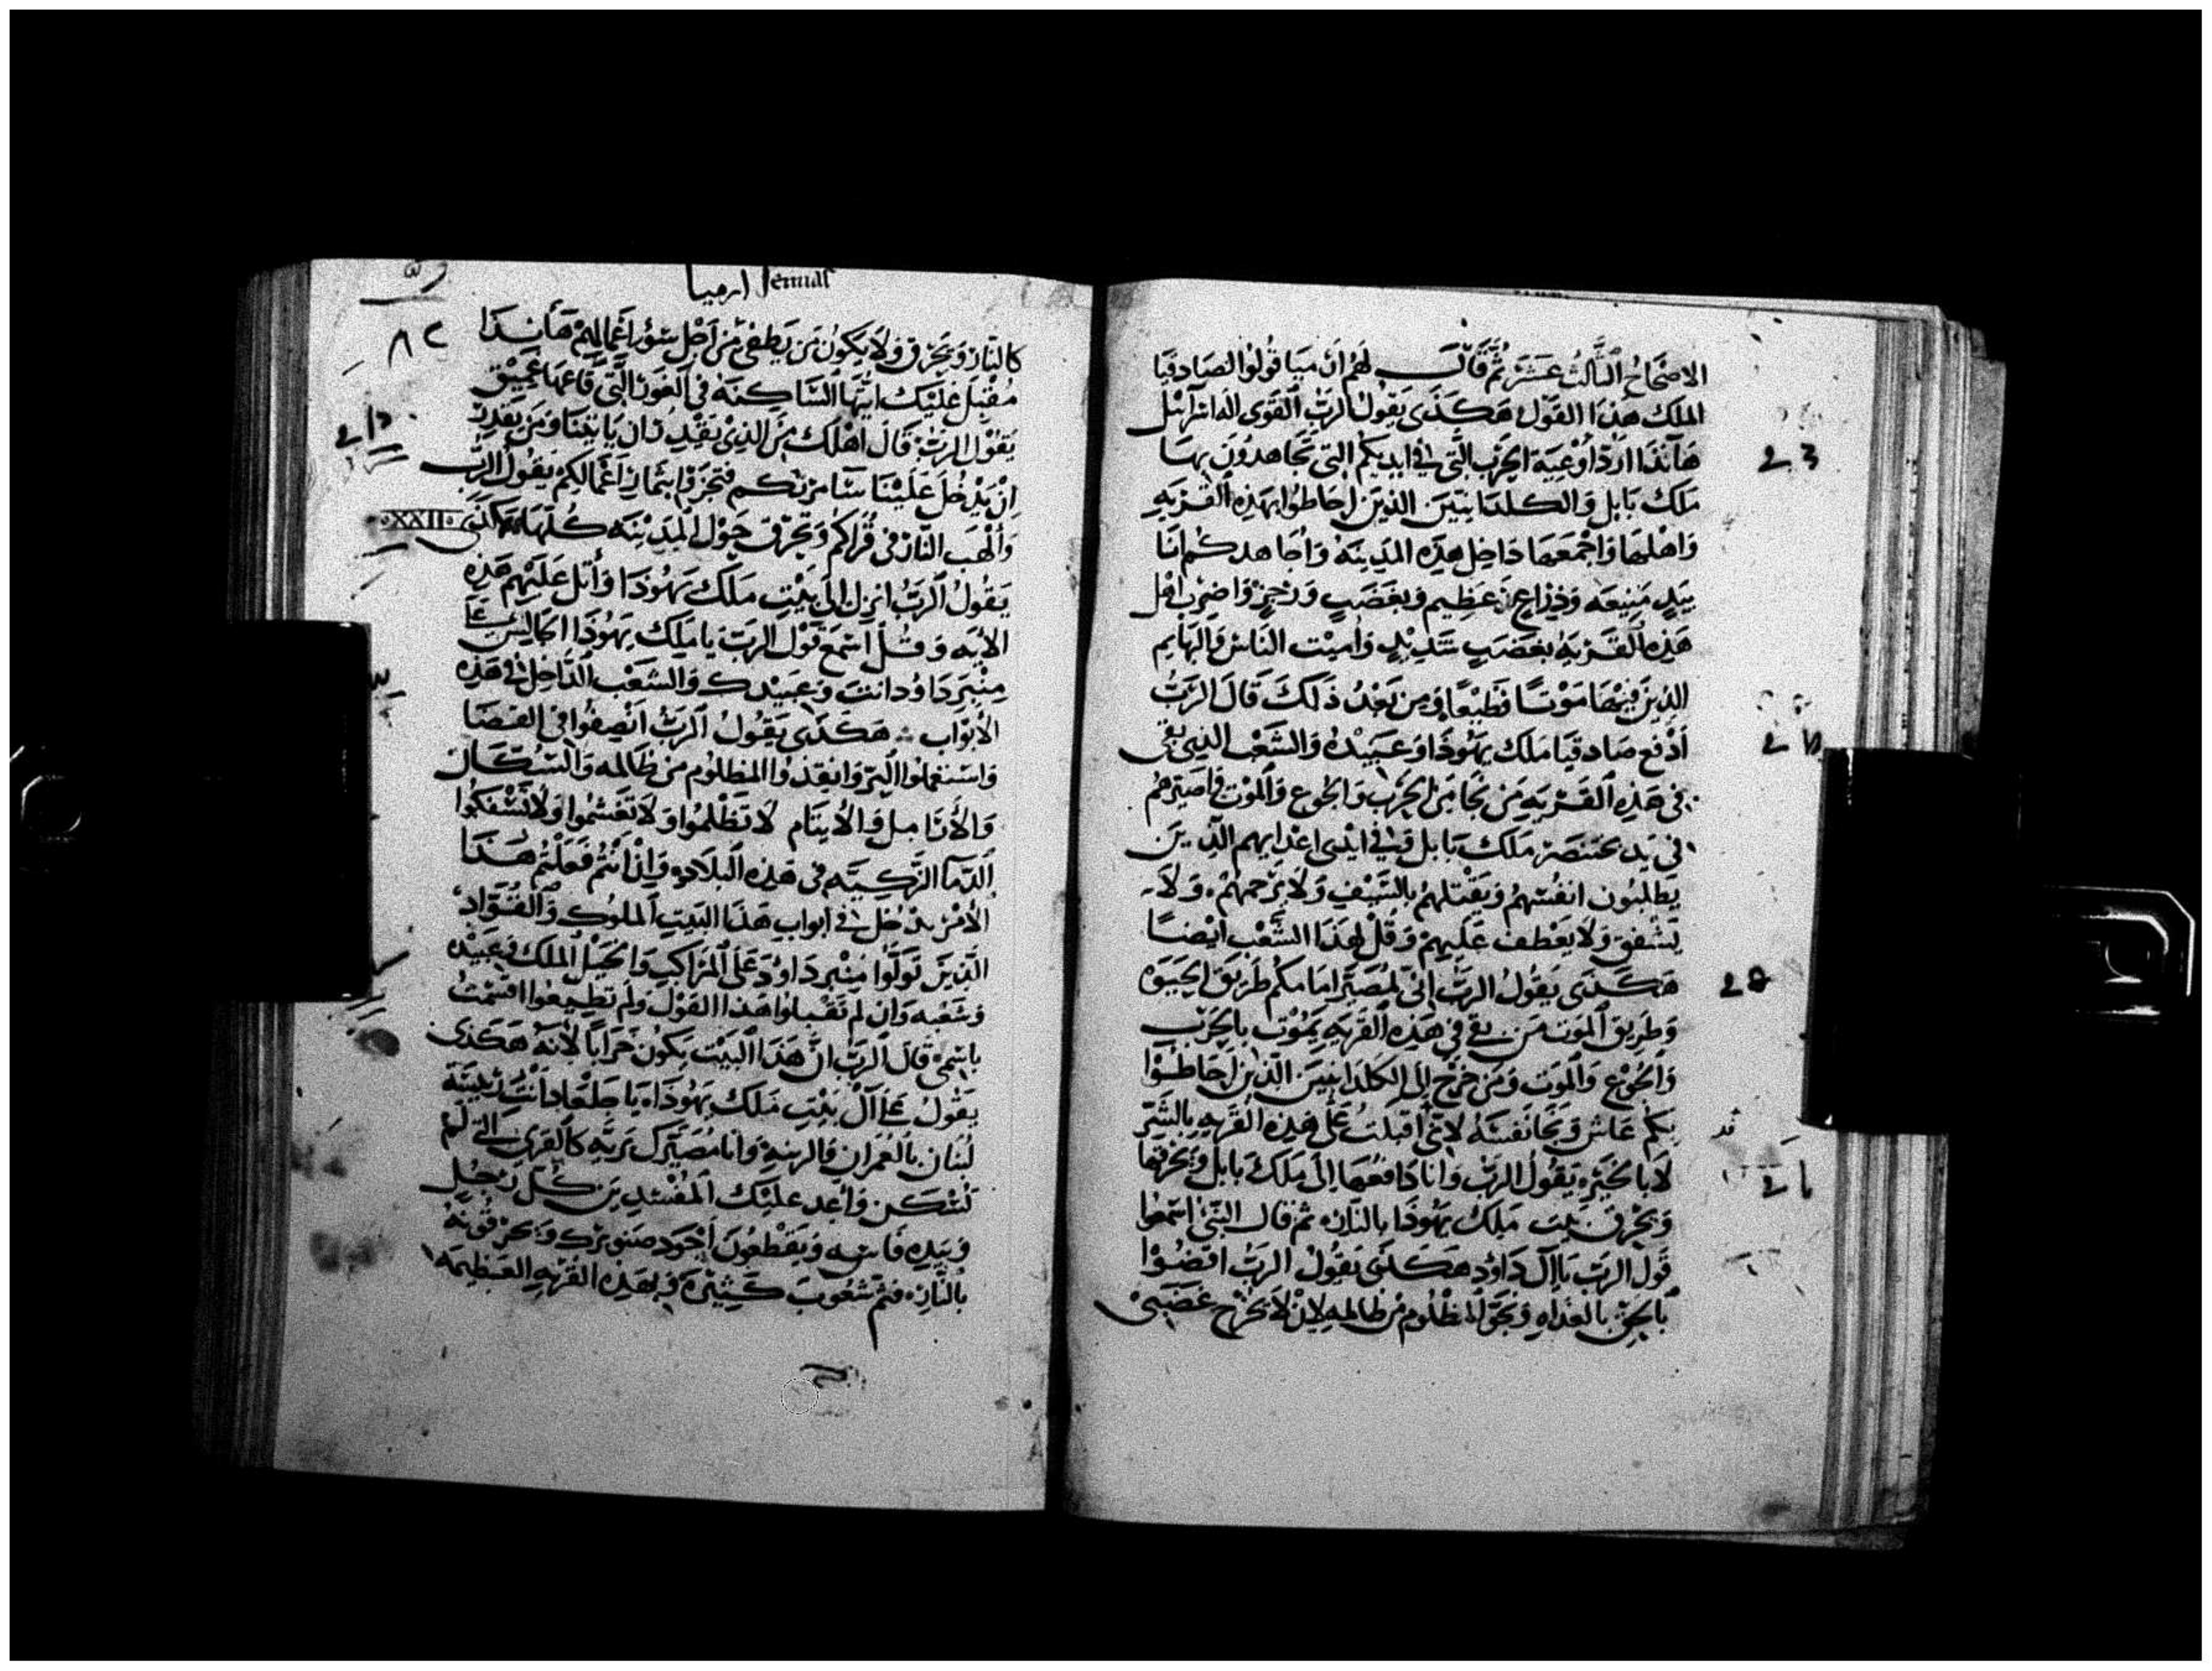 الاصحاح الثالث عشر ثم قال لهم ارميا قولوا لصادقيا
الملك هذا القول هكذى يقول الرب القوى اله اسرائيل
هآنذا اردّ اوعية الحرب التى فى ايديكم التى تجاهدون بها
ملك بابل والكلدانيين الذين احاطوا بهذه القريه
واهلها واجمعها داخل هذه المدينه واجاهدكم انا
بيد منيعه وذراع عظيم وبغضب ورجز واضرب اهل
هذه القريه بغضب شديد واميت الناس والبهايم
الذين فيها موتا فظيعا ومن بعد ذلك قال الرب
ادفع صادقيا ملك يهوذا وعبيده والشعب الذى بقى
فى هذه القريه من نجا من الحرب والجوع والموت واصيرهم
فى يد بختنصر ملك بابل وفى ايدى اعدايهم الذين
يطلبون انفسهم ويقتلهم بالسيف ولا يرحمهم ولا
يشفق ولا يعطف عليهم وقل لهذا الشعب ايضا
هكذى يقول الرب انى لمصير امامكم طريق الحيوه
وطريق الموت من بقى فى هذه القريه يموت بالحرب
والجوع والموت ومن خرج الى الكلدانيين الذين احاطوا
بكم عاش ونجا نفسه لانى قد اقبلت على هذه القريه بالشر
لا بالخير يقول الرب وانا دافعها الى ملك بابل ويحرقها
ويحرق بيت ملك يهوذا بالنار ثم قال النبى اسمعوا
قول الرب يا آل داود هكذى يقول الرب اقضوا
بالحق بالغداه ونجوا المظلوم من ظالمه لان لا يخرج غضبى
ارميا Jeremias
٨٢
كالنار ويحرق ولا يكون من يطفى من اجل سؤ اعمالهم هأنذا
مقبل عليك ايتها الساكنه فى الغور التى قاعها عميق
يقول الرب قال اهلك من الذى يقدر ان ياتينا ومن يقدر
ان يدخل علينا مساكننا فتجزوا بثمار اعمالكم يقول الرب
والهب النار فى قراكم وتحرق حول المدينه كلها هكذى
XXII
يقول الرب انزل الى بيت ملك يهوذا واتل عليهم هذه
الايه وقل اسمع قول الرب يا ملك يهوذا الجالس على
منبر داود انت وعبيدك والشعب الداخل فى هذه
الابواب هكذى يقول الرب انصفوا فى القضا
واستعملوا البر وانقذوا المظلوم من ظالمه والسكان
والارامل والايتام لا تظلموا ولا تغشموا ولا تسفكوا
الدما الزكيه فى هذه البلاد وإذا انتم فعلتم هذا
الامر يدخل فى ابواب هذا البيت الملوك والقواد
الذين تولوا منبر داود على المراكب والخيل الملك وعبيده
وشعبه وان لم تقبلوا هذا القول ولم تطيعوا اقسمت
باسمى قال الرب ان هذا البيت يكون خرابا لانه هكذى
يقول على آل بيت ملك يهوذا يا جلعاد انت بمنزلة
لبنان بالعمران والزينه وانا مصيرك بريه كالقرى التى لم
تسكن واعد عليك المفسدين كل رجل
وبيده فاسه ويقطعون اجود صنوبرك ويحرقونه
بالنار فتمر شعوب كثيره بهذه القريه العظيمه